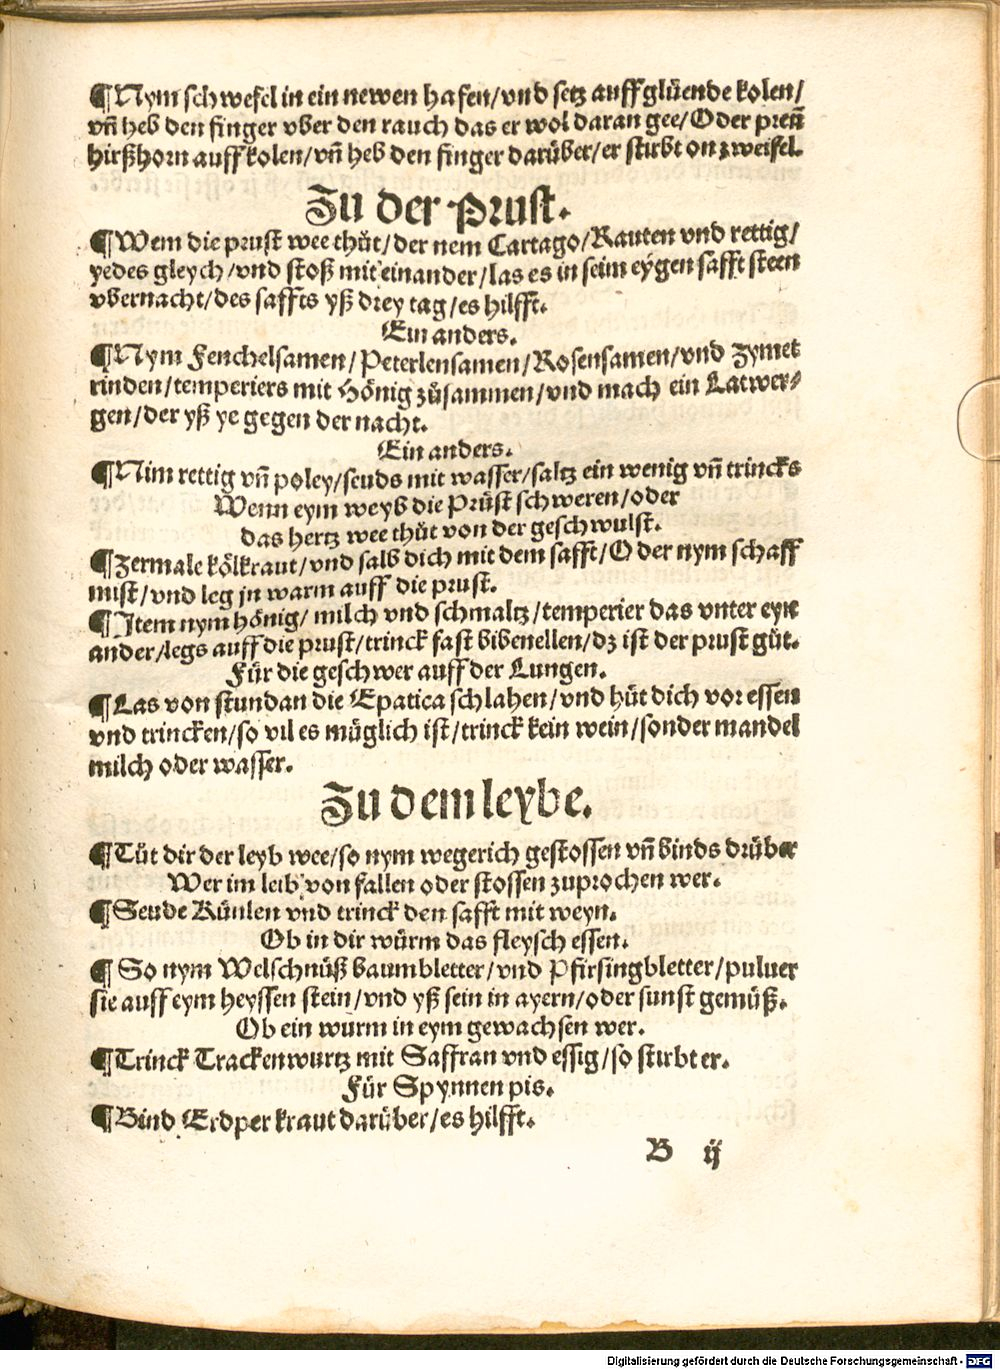 ¶Nym schwefel in ein newen hafen/vnd setz auff glüende kolen/
vñ heb den finger vber den rauch das er wol daran gee/Oder preñ
hirßhorn auff kolen/vñ heb den finger darüber/er stirbt on zweifel.
Zu der Prust.
¶Wem die prust wee thüt/der nem Cartago/Rauten vnd rettig/
yedes gleych/vnd stoß mit einander/las es in seim eygen safft steen
vbernacht/des saffts yß drey tag/es hilfft.
Ein anders.
¶Nym Fenchelsamen/Peterlensamen/Rosensamen/vnd zymet
rinden/temperiers mit Hönig züsammen/vnd mach ein Latwer⸗
gen/der yß ye gegen der nacht.
Ein anders.
¶Nim rettig vñ poley/seuds mit wasser/saltz ein wenig vñ trincks
Wenn eym weyb die Prüst schweren/oder
das hertz wee thüt von der geschwulst.
¶Zermale kölkraut/vnd salb dich mit dem safft/Oder nym schaff
mist/vnd leg jn warm auff die prust.
¶Item nym hönig/milch vnd schmaltz/temperier das vnter eyn
ander/legs auff die prust/trinck fast bibenellen/dz ist der prust güt.
Für die geschwer auff der Lungen.
¶Las von stundan die Epatica schlahen/vnd hüt dich vor essen
vnd trincken/so vil es müglich ist/trinck kein wein/sonder mandel
milch oder wasser.
Zu dem leybe.
¶Tüt dir der leyb wee/so nym wegerich gestossen vñ binds drüber
Wer im leib von fallen oder stossen zuprochen wer.
¶Seude Künlen vnd trinck den safft mit weyn.
Ob in dir würm das fleysch essen.
¶So nym Welschnüß baumbletter/vnd Pfirsingbletter/puluer
sie auff eym heyssen stein/vnd yß sein in ayern/oder sunst gemüß.
Ob ein wurm in eym gewachsen wer.
¶Trinck Trackenwurtz mit Saffran vnd essig/so stirbt er.
Für Spynnen pis.
¶Bind Erdper kraut darüber/es hilfft.
B ij
Digitalisierung gefördert durch die Deutsche Forschungsgemeinschaft - DFG